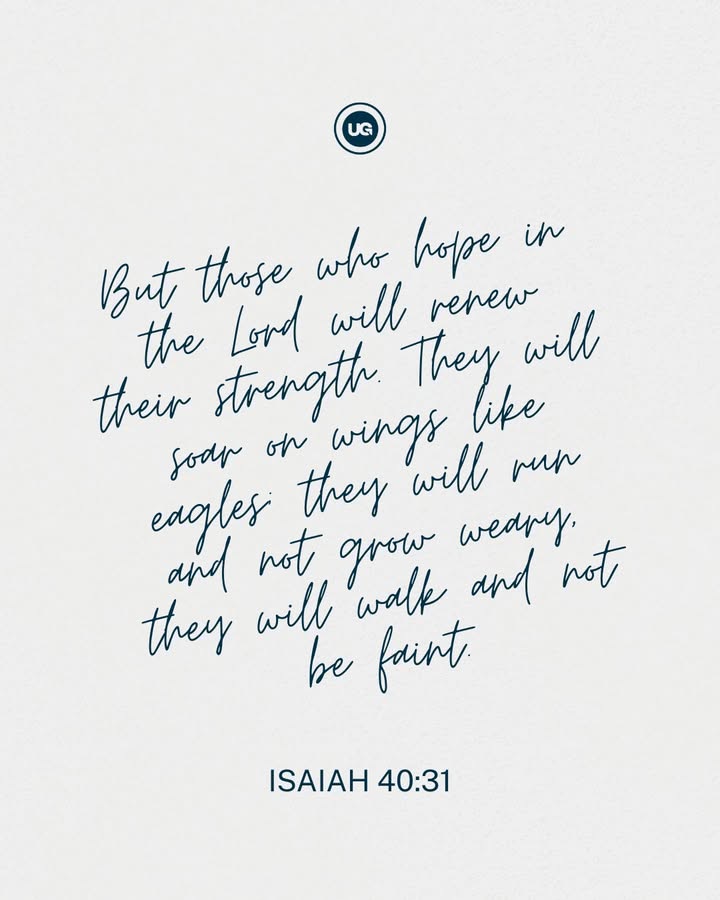 UG
But those who hope in
the Lord will renew
their strength. They will
soar on wings like
eagles; they will run
and not grow weary,
they will walk and not
be faint.
ISAIAH 40:31